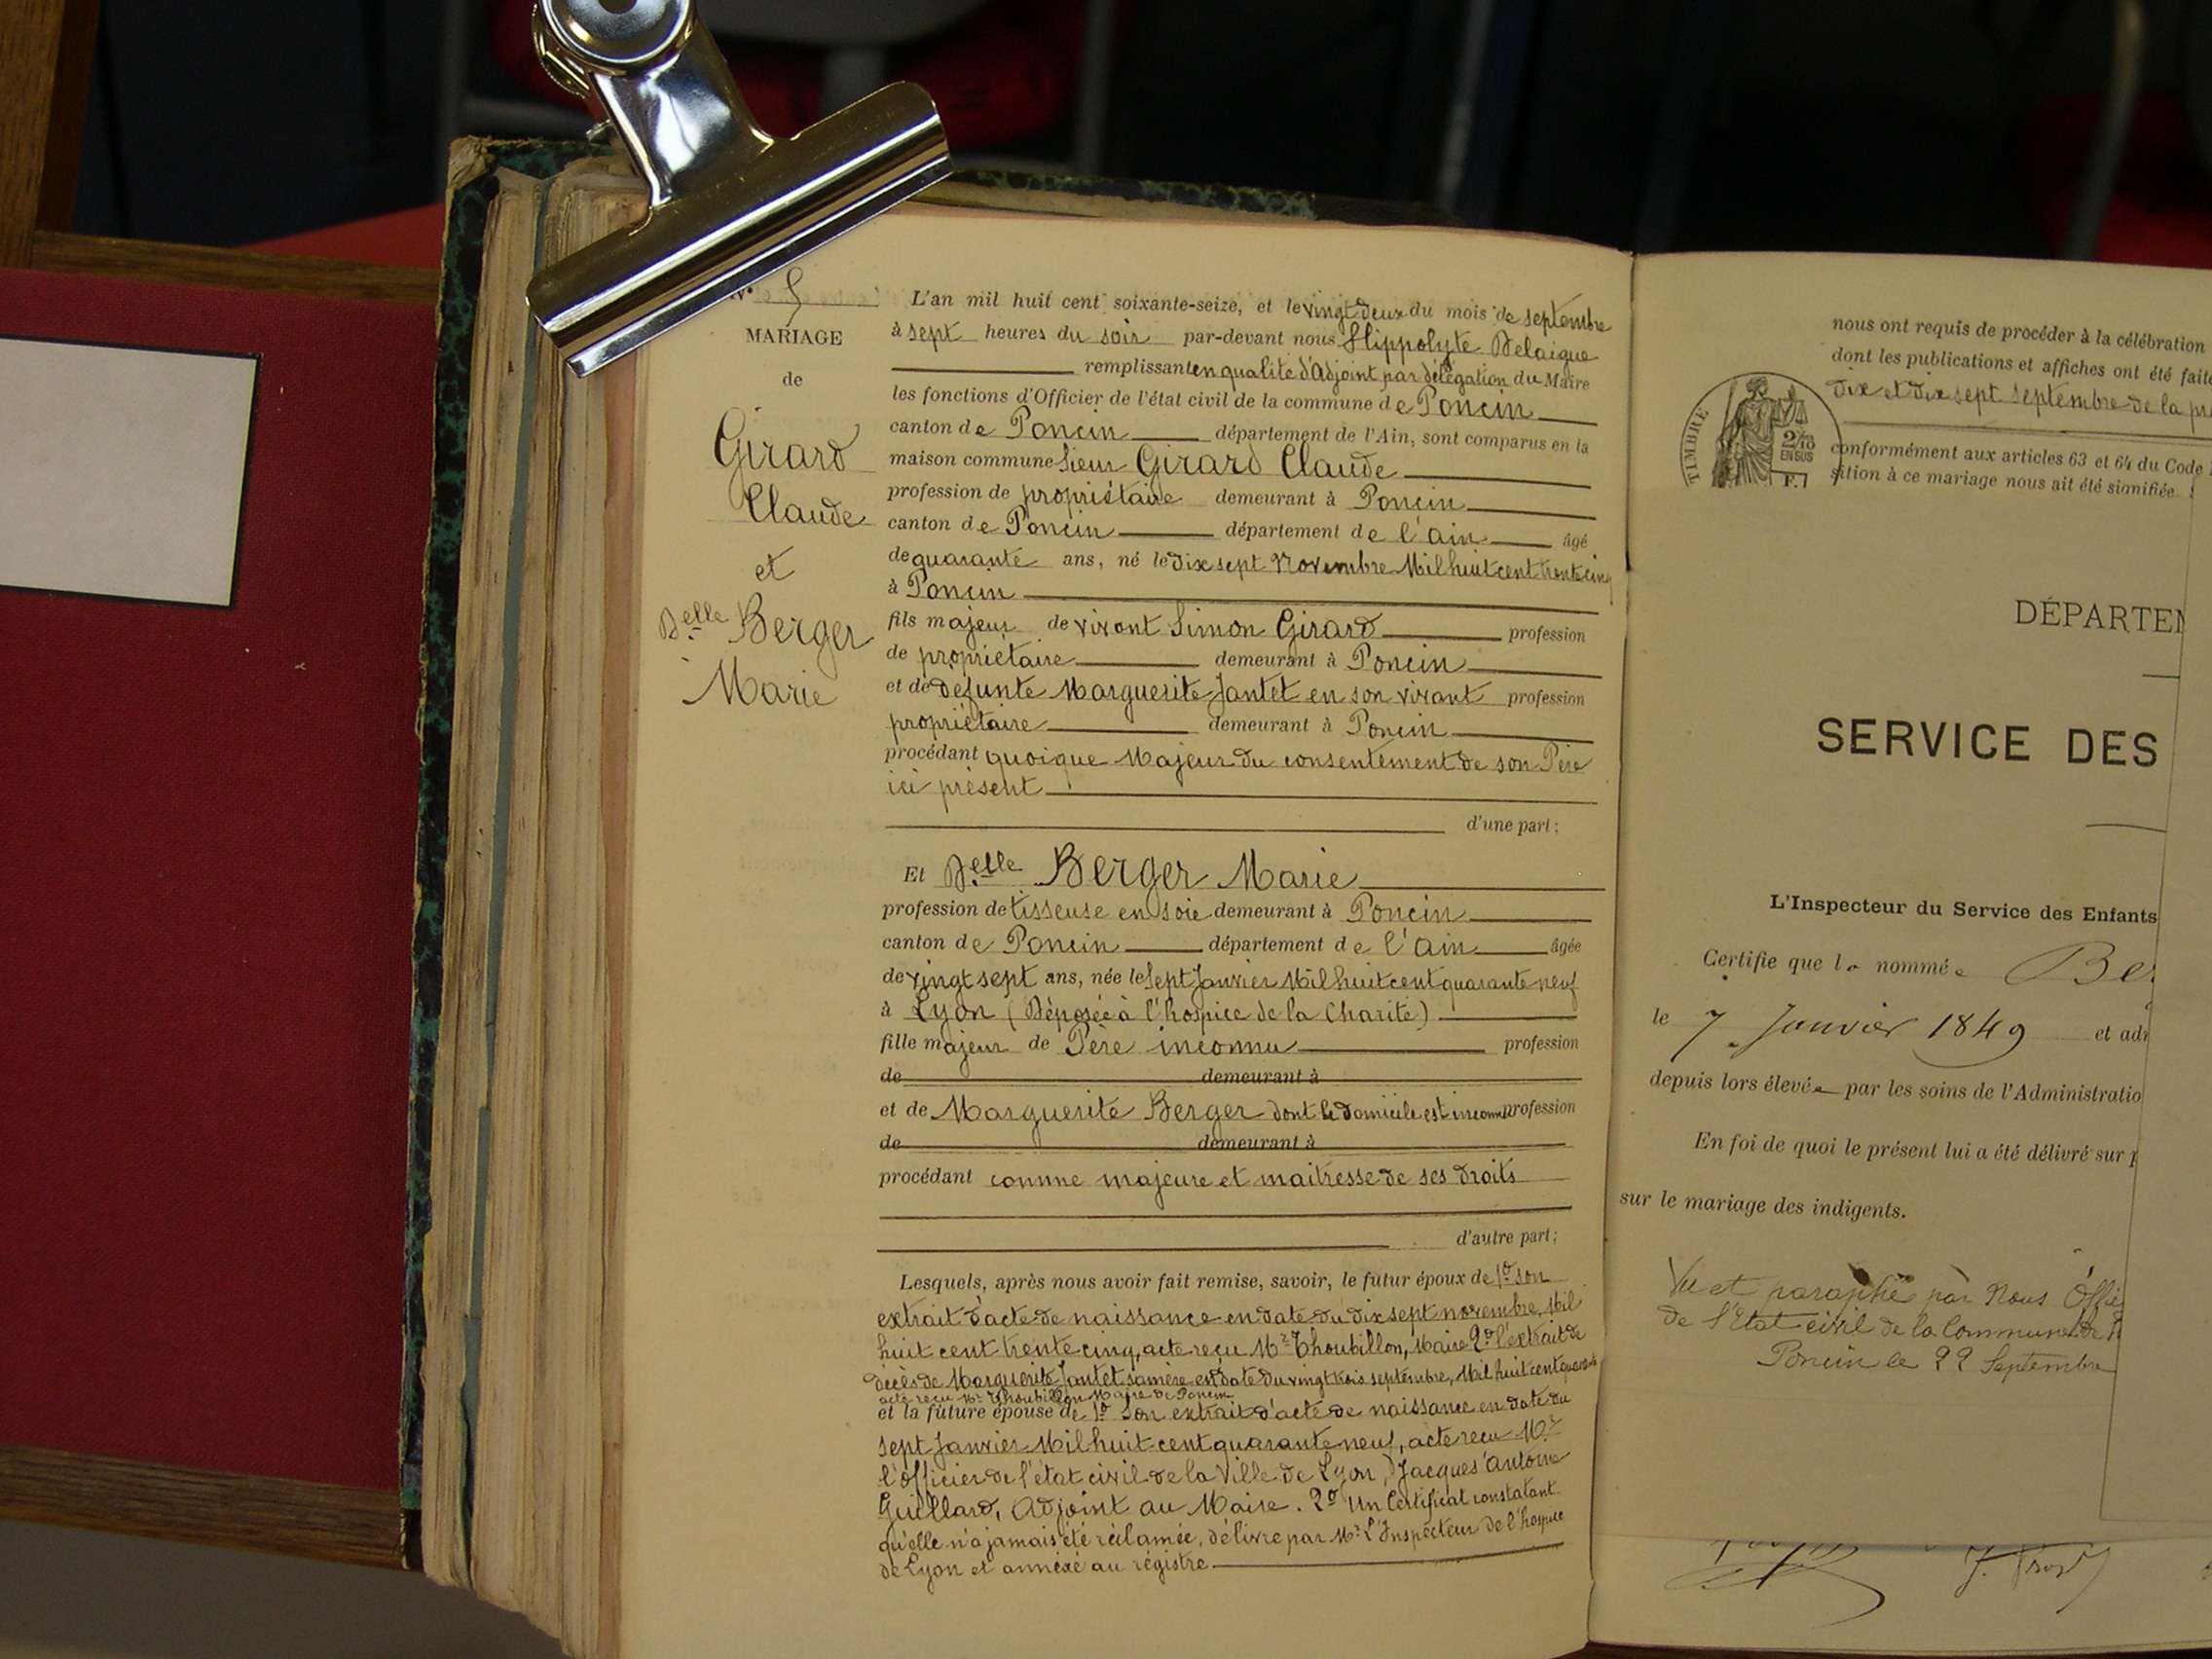 N° 5
MARIAGE
de
Girard
Claude
et
Delle Berger
Marie
L'an mil huit cent soixante-seize, et le vingt deux du mois de septembre
à sept heures du soir par-devant nous Hippolyte Delaigue
remplissant en qualité d'adjoint par délégation du Maire
les fonctions d'Officier de l'état civil de la commune de Poncin
canton de Poncin département de l'Ain, sont comparus en la
maison commune sieur Girard Claude
profession de propriétaire demeurant à Poncin
canton de Poncin département de l'ain âgé
de quarante ans, né le dix sept Novembre Mil huit cent trente cinq
à Poncin
fils majeur de vivant Simon Girard profession
de propriétaire demeurant à Poncin
et de défunte Marguerite Jantet en son vivant profession
propriétaire demeurant à Poncin
procédant quoique Majeur du consentement de son Père
ici présent
d'une part;
Et Delle Berger Marie
profession de tisseuse en soie demeurant à Poncin
canton de Poncin département de l'ain âgée
de vingt sept ans, née le sept Janvier Mil huit cent quarante neuf
à Lyon (Déposée à l'hospice de la Charité)
fille majeur de Père inconnu profession
de demeurant à
et de Marguerite Berger dont le domicile est inconnu profession
de demeurant à
procédant comme majeure et maitresse de ses droits
d'autre part;
Lesquels, après nous avoir fait remise, savoir, le futur époux de 1° son
extrait d'acte de naissance en date du dix sept novembre Mil
huit cent trente cinq, acte reçu Mr Thoubillon, Maire 2° l'extrait de
décès de Marguerite Jantet sa mère en date du vingt trois septembre, Mil huit cent quarante
acte reçu Mr Thoubillon Maire de Poncin
et la future épouse de 1° Son extrait d'acte de naissance en date du
sept Janvier Mil huit cent quarante neuf, acte reçu Mr
l'officier de l'état civil de la Ville de Lyon, Jacques Antoine
Guillard, Adjoint au Maire. 2° Un Certificat constatant
qu'elle n'a jamais été réclamée, délivré par Mr L'Inspecteur de l'hospice
de Lyon et annéxé au régistre
nous ont requis de procéder à la célébration
dont les publications et affiches ont été faite
dix et dix sept septembre de la pré
conformément aux articles 63 et 64 du Code
sition à ce mariage nous ait été signifiée
TIMBRE
2/10
EN SUS
F.
DÉPARTEM
SERVICE DES
L'Inspecteur du Service des Enfants
Certifie que la nommée Ber
le 7 Janvier 1849 et adm
depuis lors élevée par les soins de l'Administratio
En foi de quoi le présent lui a été délivré sur p
sur le mariage des indigents.
Vu et paraphé par Nous Offi
de l'Etat civil de la Commune de
Poncin le 22 Septembre